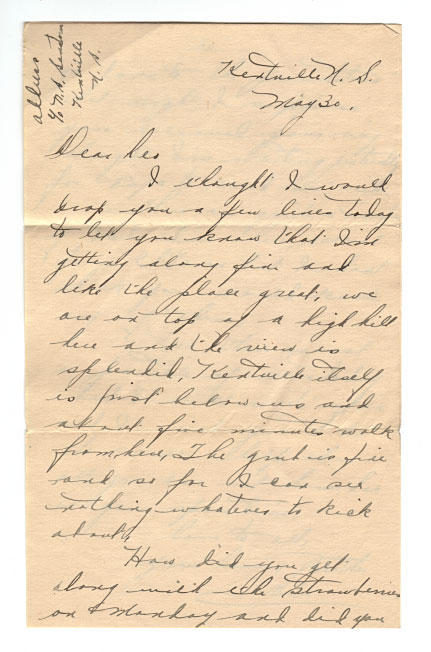 address
c/o N.S. Sanatorium
Kentville
N. S.
Kentville N. S.
May 30.
Dear Leo
I thought I would
drop you a few lines today
to let you know that I'm
getting along fine and
like the place great, we
are on top of a high hill
here and the view is
splendid, Kentville itself
is just below us and
about five minutes walk
from here, The grub is fine
and so far I can see
nothing whatever to kick
about.
How did you get
along with the strawberries
on Monday and did you